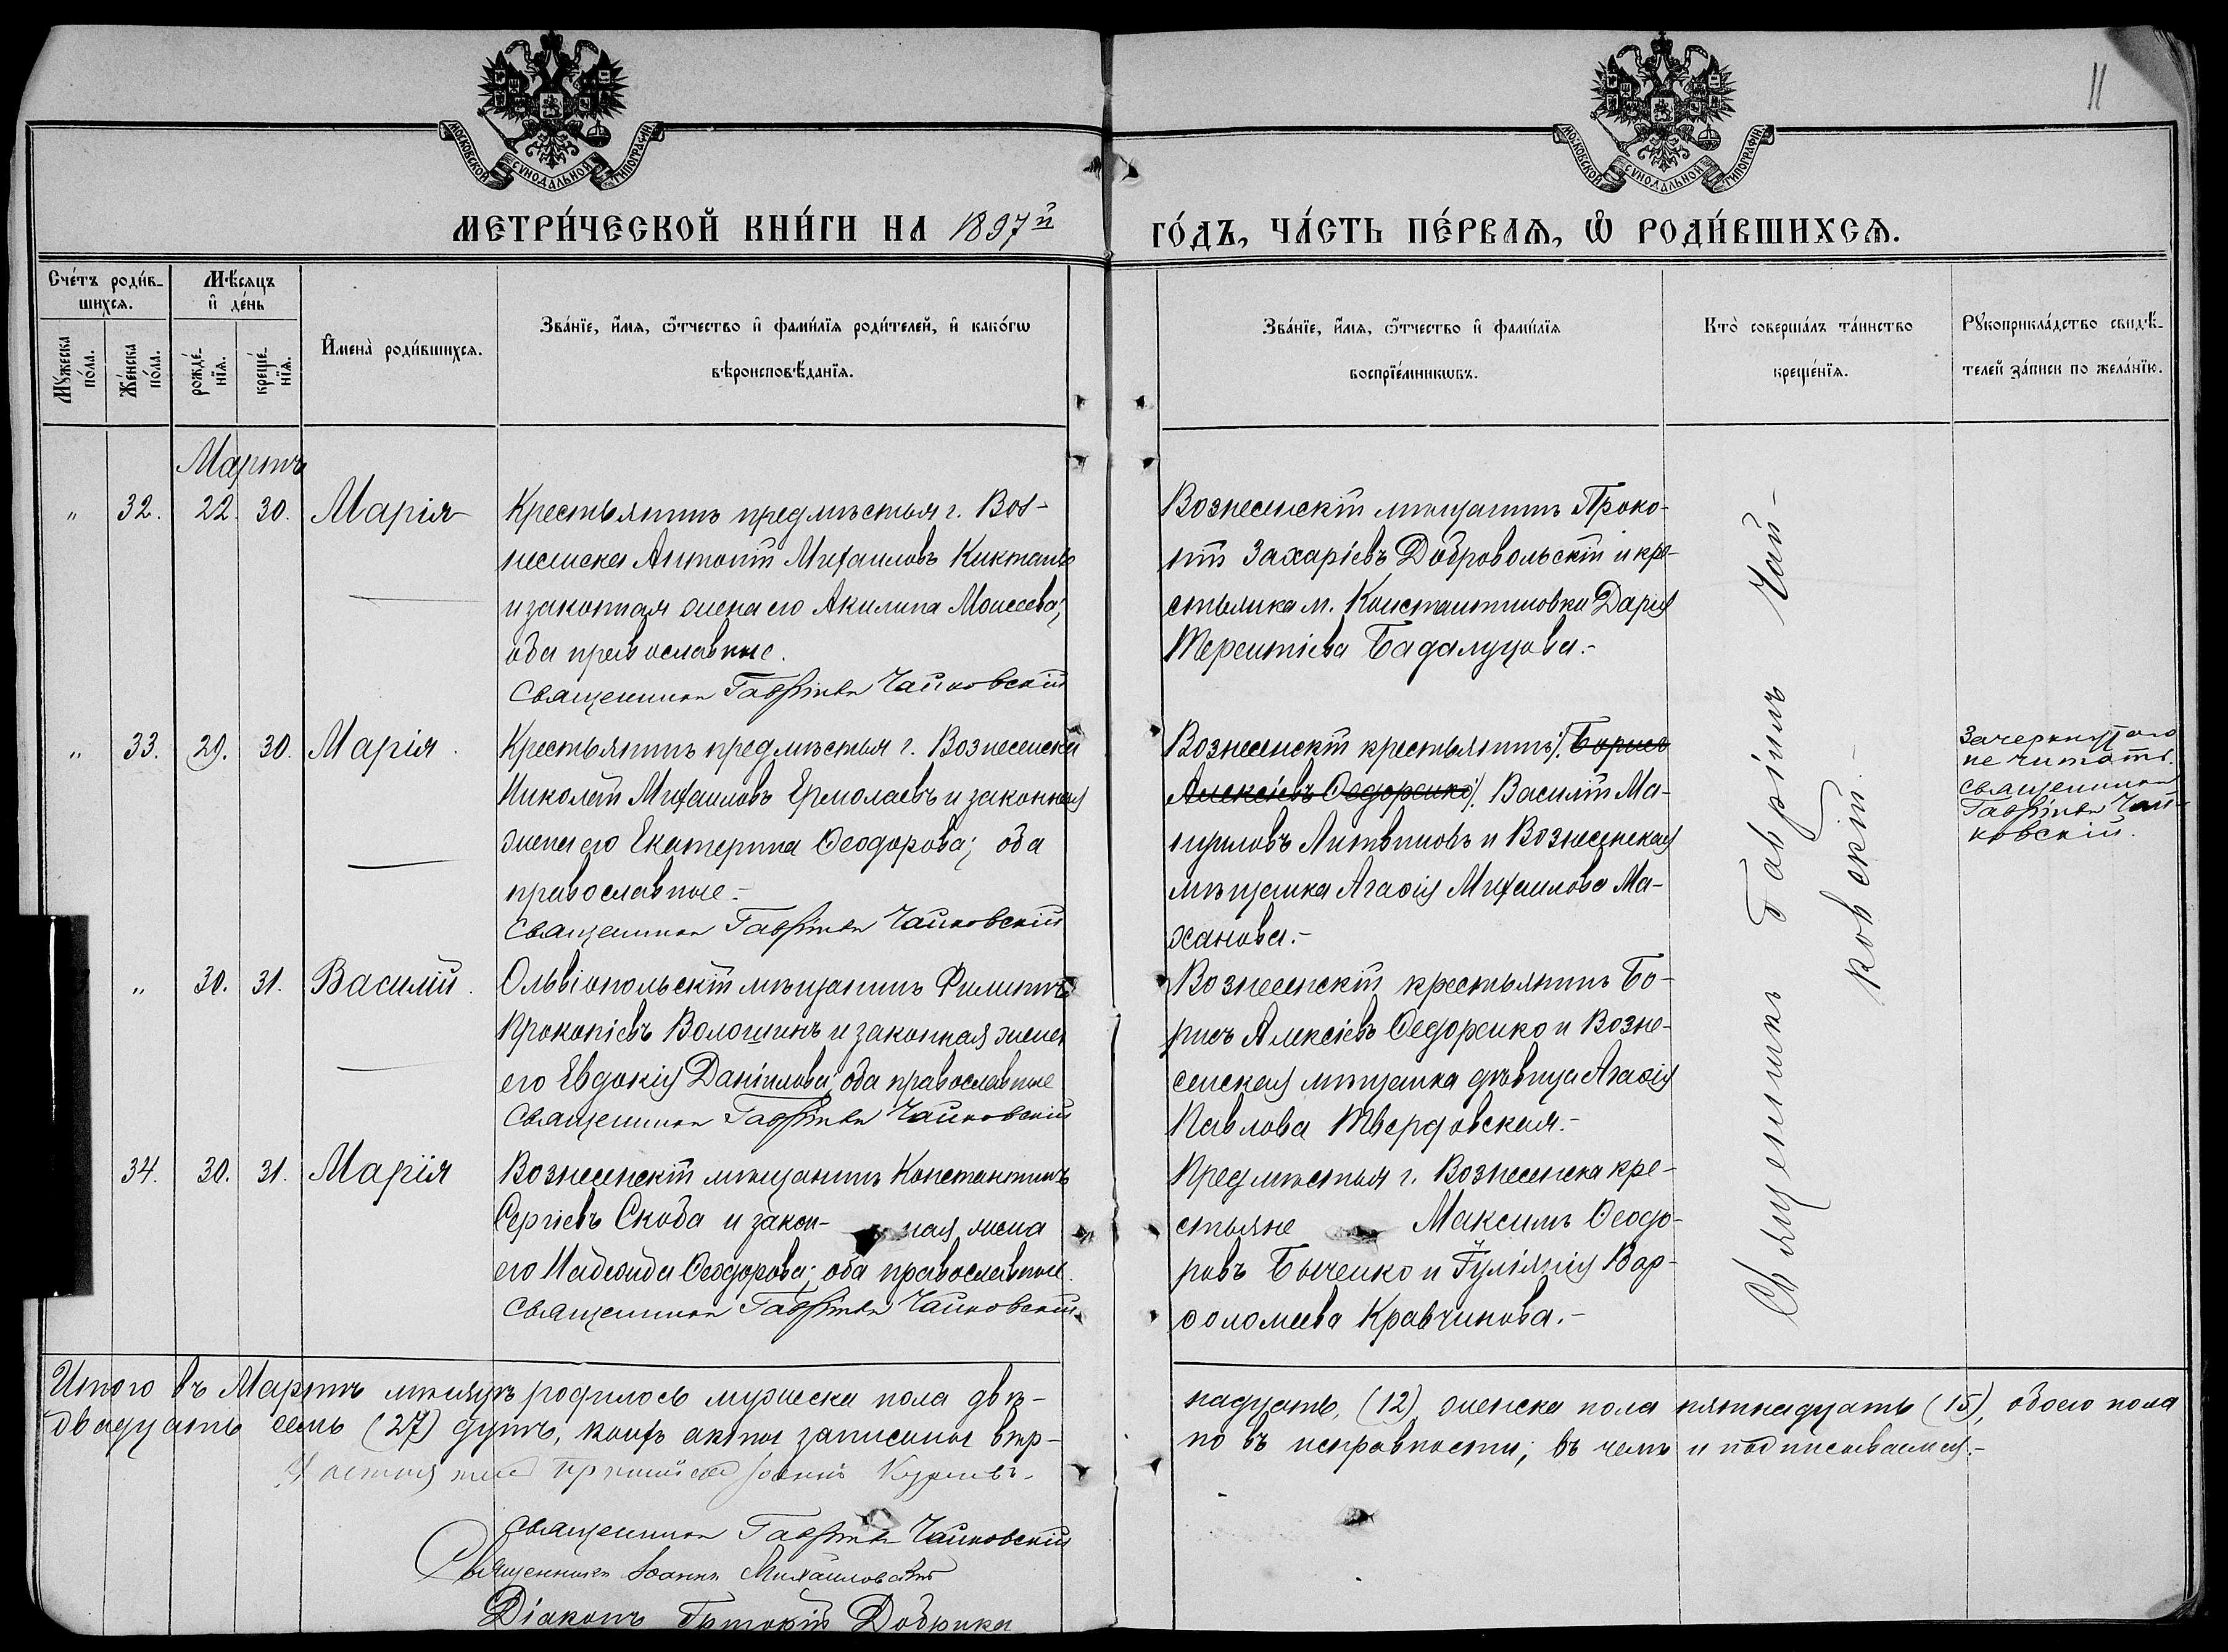 11
МОСКОВСКОЙ СУНОДАЛЬНОЙ ТИПОГРАФІИ
МОСКОВСКОЙ СУНОДАЛЬНОЙ ТИПОГРАФІИ
МЕТРИ́ЧЕСКОЙ КНИ́ГИ НА 1897й
ГО́ДЪ, ЧА́СТЬ ПЕ́РВАѦ, Ѡ҆ РОДИ́ВШИХСѦ.
Сче́тъ роди́в-
шихсѧ.
Мѣсяцъ
и҆ де́нь
Мꙋ́жеска
по́ла.
Же́нска
по́ла.
рожде́-
нїѧ.
креще́-
нїѧ.
И҆мена̀ роди́вшихсѧ.
Зва́нїе, и҆́мѧ, ѻ҆́тчество и҆ фами́лїѧ роди́телей, и҆ како́гѡ
вѣроисповѣ́данїѧ.
Зва́нїе, и҆́мѧ, ѻ҆́тчество и҆ фами́лїѧ
воспрїе́мникѡвъ.
Кто̀ соверша́лъ та́инство
креще́нїѧ.
Рꙋкоприкла́дство свидѣ́-
телей за́писи по жела́нїю.
Мартъ
" 32. 22. 30. Марія
Крестьянинъ предмѣстья г. Воз-
несенска Антоній Михаиловъ Киктанъ
и законная жена его Акилина Моисеева;
оба православные.
Священникъ Гавріилъ Чайковскій
Вознесенскій мѣщанинъ Проко-
пій Захаріевъ Добровольскій и кре-
стьянка м. Константиновки Дарія
Терентіева Бадалуцова.-
" 33. 29. 30. Марія.
Крестьянинъ предмѣстья г. Вознесенска
Николай Михаиловъ Ермолаевъ и законная
жена его Екатерина Ѳеодорова; оба
православные.-
Священникъ Гавріилъ Чайковскій
Вознесенскій крестьянинъ (Борисъ
Алексіевъ Ѳедоренко) Василій Ма-
нуиловъ Литвиновъ и Вознесенская
мѣщанка Агаѳія Михаилова Ма-
ханова.-
Зачеркнутого
не читать.
Священникъ
Гавріилъ Чай-
ковскій.
" 30. 31. Василій.
Ольвіопольскій мѣщанинъ Филиппъ
Прокопіевъ Волошинъ и законная жена
его Евдокія Даніилова; оба православные
Священникъ Гавріилъ Чайковскій
Вознесенскій крестьянинъ Бо-
рисъ Алексіевъ Ѳедоренко и Возне-
сенская мѣщанка дѣвица Агаѳія
Павлова Твердовская.-
34. 30. 31. Марія
Вознесенскій мѣщанинъ Константинъ
Сергіевъ Скоба и закон- ная жена
его Надежда Ѳеодорова; оба православные.
Священникъ Гавріилъ Чайковскій.
Предмѣстья г. Вознесенска кре-
стьяне Максимъ Ѳеодо-
ровъ Быченко и Іуліанія Вар-
ѳоломеева Кравчинова.-
Священникъ Гавріилъ Чай-
ковскій.-
Итого въ Мартѣ мѣсяцѣ родилось мужеска пола двѣ-
надцать, (12) женска пола пятнадцать (15), обоего пола
двадцать семь (27) душъ, коихъ акты записаны вѣр-
но въ исправности; въ чемъ и подписываемся.-
Іоаннъ
Священникъ Гавріилъ Чайковскій
Священникъ Іоаннъ Михаиловскій
Діаконъ Григорій Добрика